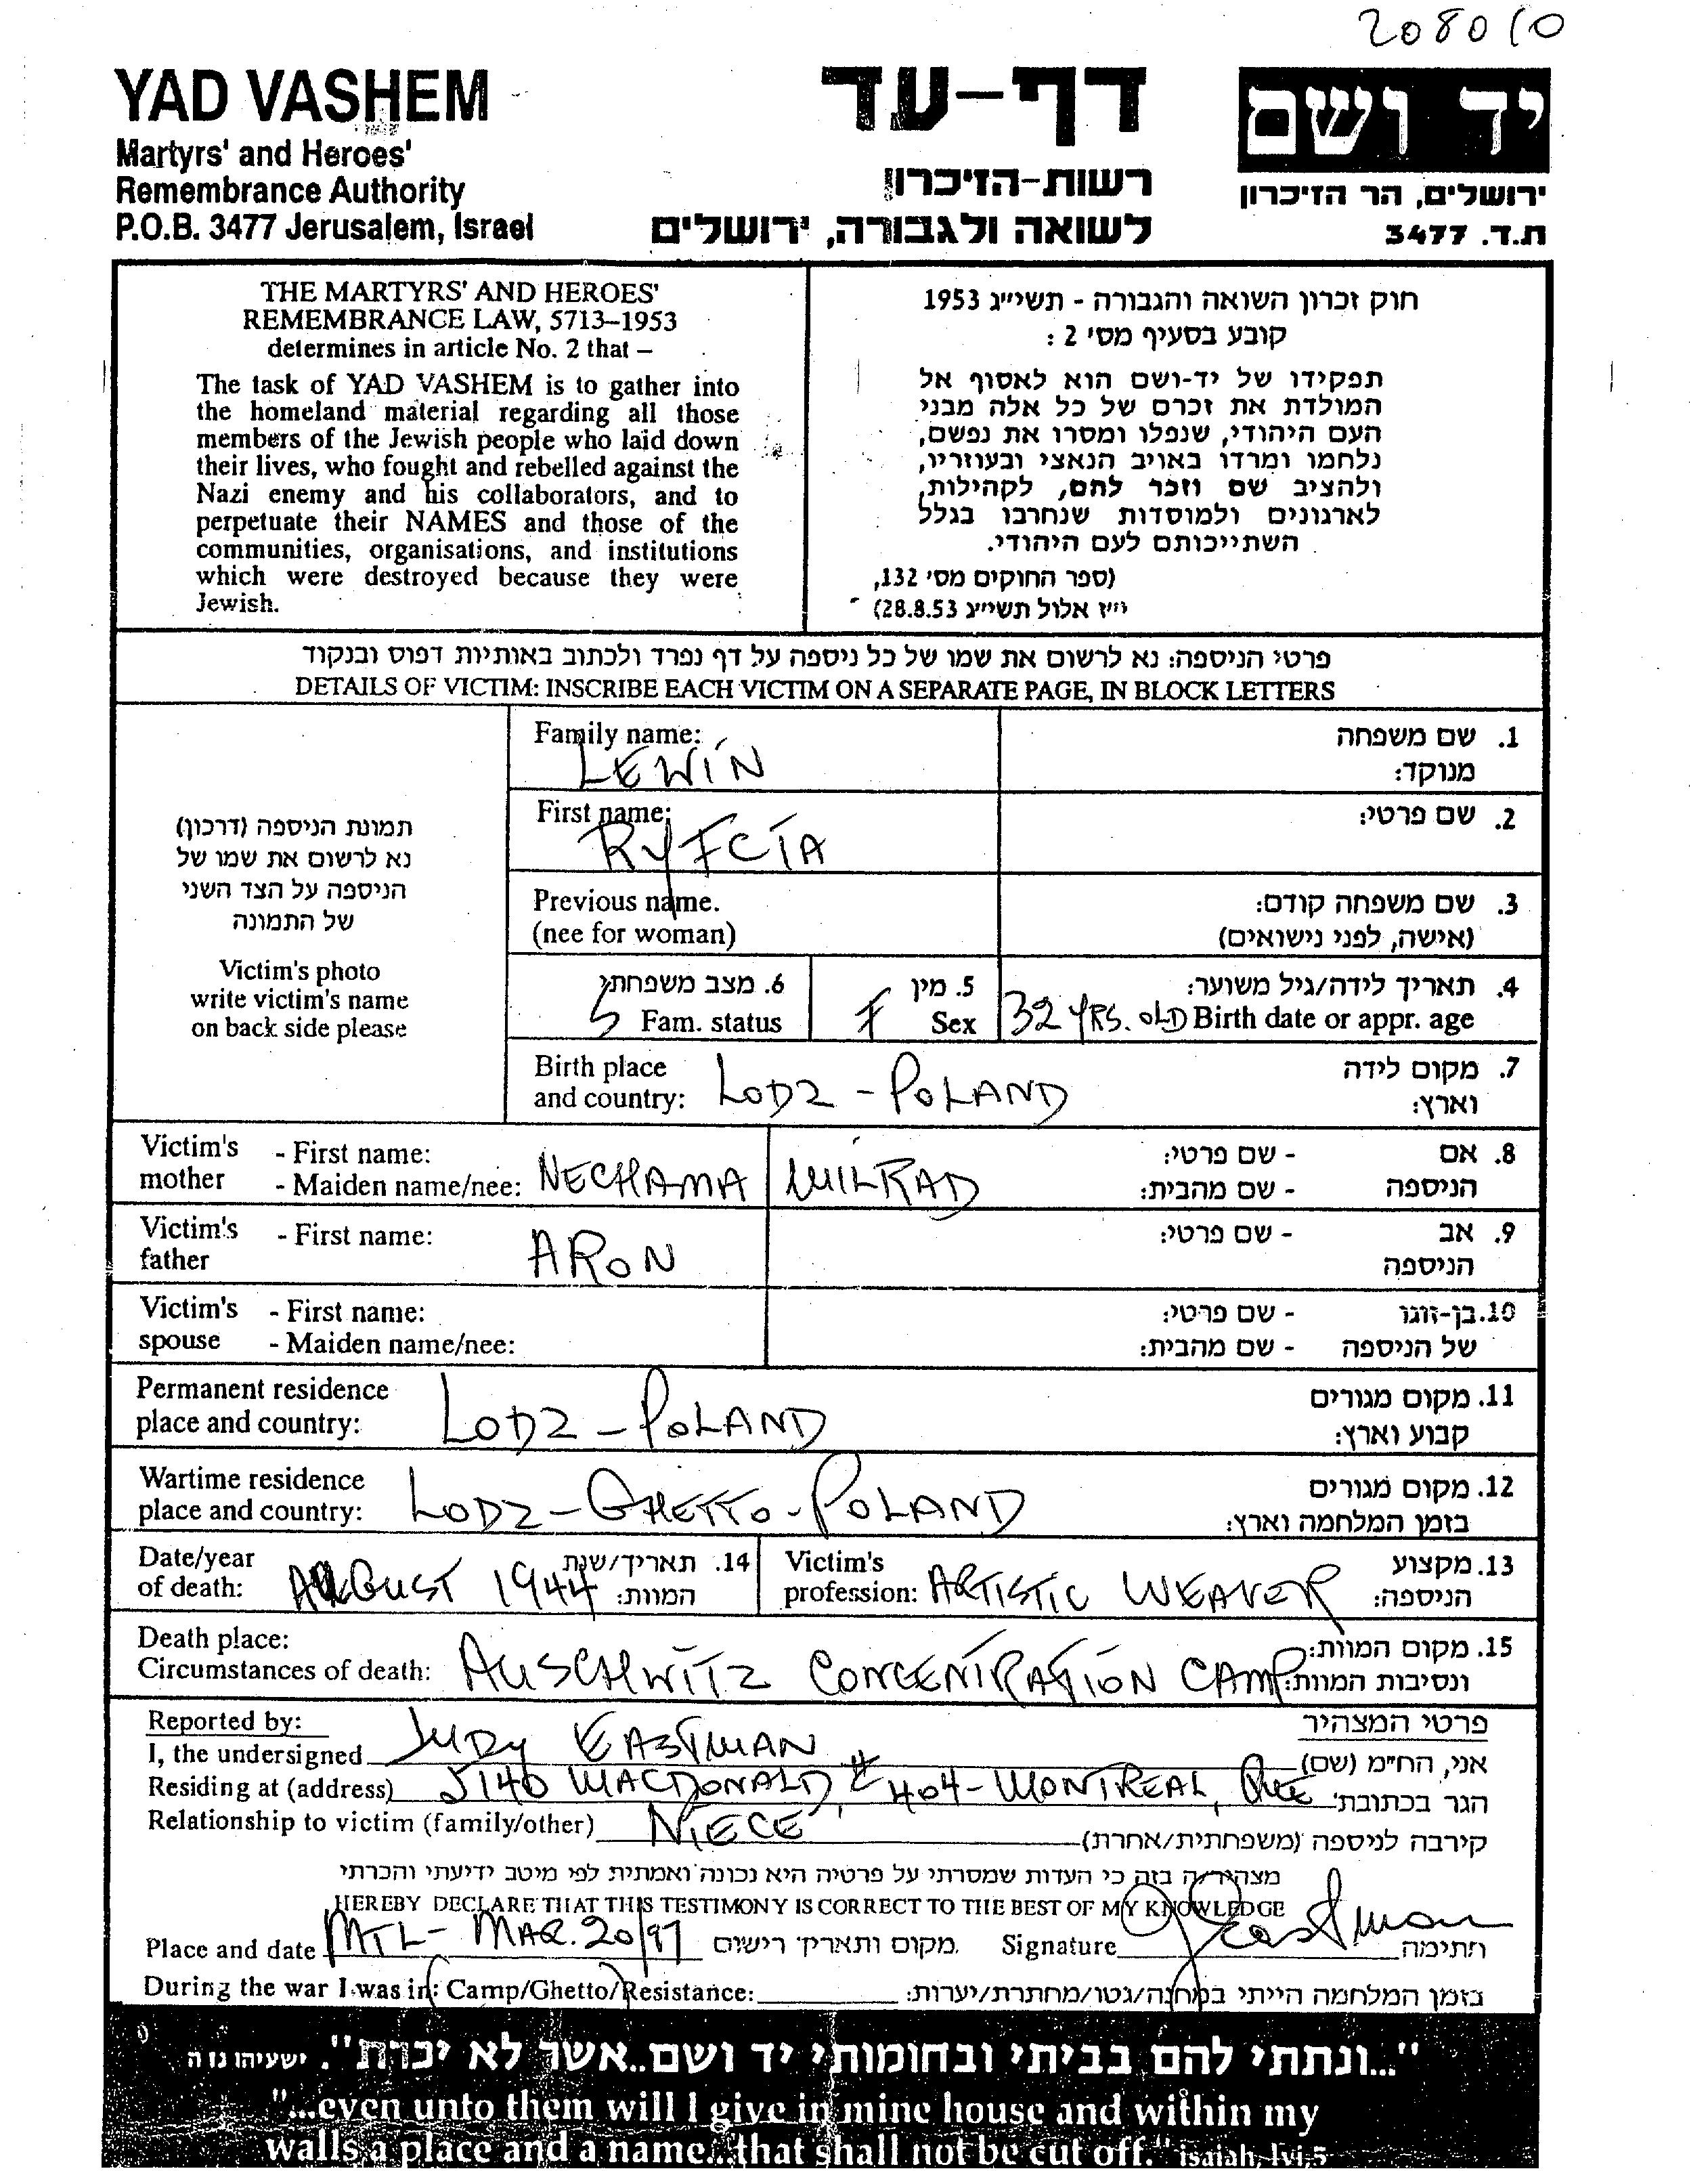 208010
YAD VASHEM
Martyrs' and Heroes'
Remembrance Authority
P.O.B. 3477 Jerusalem, Israel
דף-עד
רשות-הזיכרון
לשואה ולגבורה, ירושלים
יד ושם
ירושלים, הר הזיכרון
ת.ד. 3477
THE MARTYRS' AND HEROES'
REMEMBRANCE LAW, 5713–1953
determines in article No. 2 that –
The task of YAD VASHEM is to gather into
the homeland material regarding all those
members of the Jewish people who laid down
their lives, who fought and rebelled against the
Nazi enemy and his collaborators, and to
perpetuate their NAMES and those of the
communities, organisations, and institutions
which were destroyed because they were
Jewish.
חוק זכרון השואה והגבורה - תשי״ג 1953
קובע בסעיף מס' 2 :
תפקידו של יד-ושם הוא לאסוף אל
המולדת את זכרם של כל אלה מבני
העם היהודי, שנפלו ומסרו את נפשם,
נלחמו ומרדו באויב הנאצי ובעוזריו,
ולהציב שם וזכר להם, לקהילות,
לארגונים ולמוסדות שנחרבו בגלל
השתייכותם לעם היהודי.
(ספר החוקים מס' 132,
י״ז אלול תשי״ג 28.8.53)
פרטי הניספה: נא לרשום את שמו של כל ניספה על דף נפרד ולכתוב באותיות דפוס ובנקוד
DETAILS OF VICTIM: INSCRIBE EACH VICTIM ON A SEPARATE PAGE, IN BLOCK LETTERS
תמונת הניספה (דרכון)
נא לרשום את שמו של
הניספה על הצד השני
של התמונה
Victim's photo
write victim's name
on back side please
Family name: LEWIN
1. שם משפחה
מנוקד:
First name: RYFCIA
2. שם פרטי:
Previous name.
(nee for woman)
3. שם משפחה קודם:
(אישה, לפני נישואים)
6. מצב משפחתי
S Fam. status
5. מין
F Sex
4. תאריך לידה/גיל משוער:
32 YRS. OLD Birth date or appr. age
Birth place
and country: LODZ - POLAND
7. מקום לידה
וארץ:
Victim's mother - First name:
- Maiden name/nee: NECHAMA MILRAD
8. אם - שם פרטי:
הניספה - שם מהבית:
Victim's father - First name: ARON
9. אב - שם פרטי:
הניספה
Victim's - First name:
spouse - Maiden name/nee:
10. בן-זוגו - שם פרטי:
של הניספה - שם מהבית:
Permanent residence
place and country: LODZ - POLAND
11. מקום מגורים
קבוע וארץ:
Wartime residence
place and country: LODZ - GHETTO - POLAND
12. מקום מגורים
בזמן המלחמה וארץ:
Date/year
of death: AUGUST 1944
14. תאריך/שנת
המוות:
Victim's
profession: ARTISTIC WEAVER
13. מקצוע
הניספה:
Death place:
Circumstances of death: AUSCHWITZ CONCENTRATION CAMP
15. מקום המוות:
ונסיבות המוות:
Reported by:
פרטי המצהיר
I, the undersigned JUDY EASTMAN אני, הח״מ (שם)
Residing at (address) 5140 MACDONALD, # 404 - MONTREAL, QUE הגר בכתובת:
Relationship to victim (family/other) NIECE קירבה לניספה (משפחתית/אחרת)-
מצהיר/ה בזה כי העדות שמסרתי על פרטיה היא נכונה ואמתית לפי מיטב ידיעתי והכרתי
HEREBY DECLARE THAT THIS TESTIMONY IS CORRECT TO THE BEST OF MY KNOWLEDGE
Place and date MTL - MAR. 20/97 מקום ותאריך רישום Signature JEastman חתימה
During the war I was in: Camp/Ghetto/Resistance: בזמן המלחמה הייתי במחנה/גטו/מחתרת/יערות:
"...ונתתי להם בביתי ובחומותי יד ושם..אשר לא יכרת". ישעיהו נו ה
"...even unto them will I give in mine house and within my
walls a place and a name...that shall not be cut off." isaiah, lvi,5